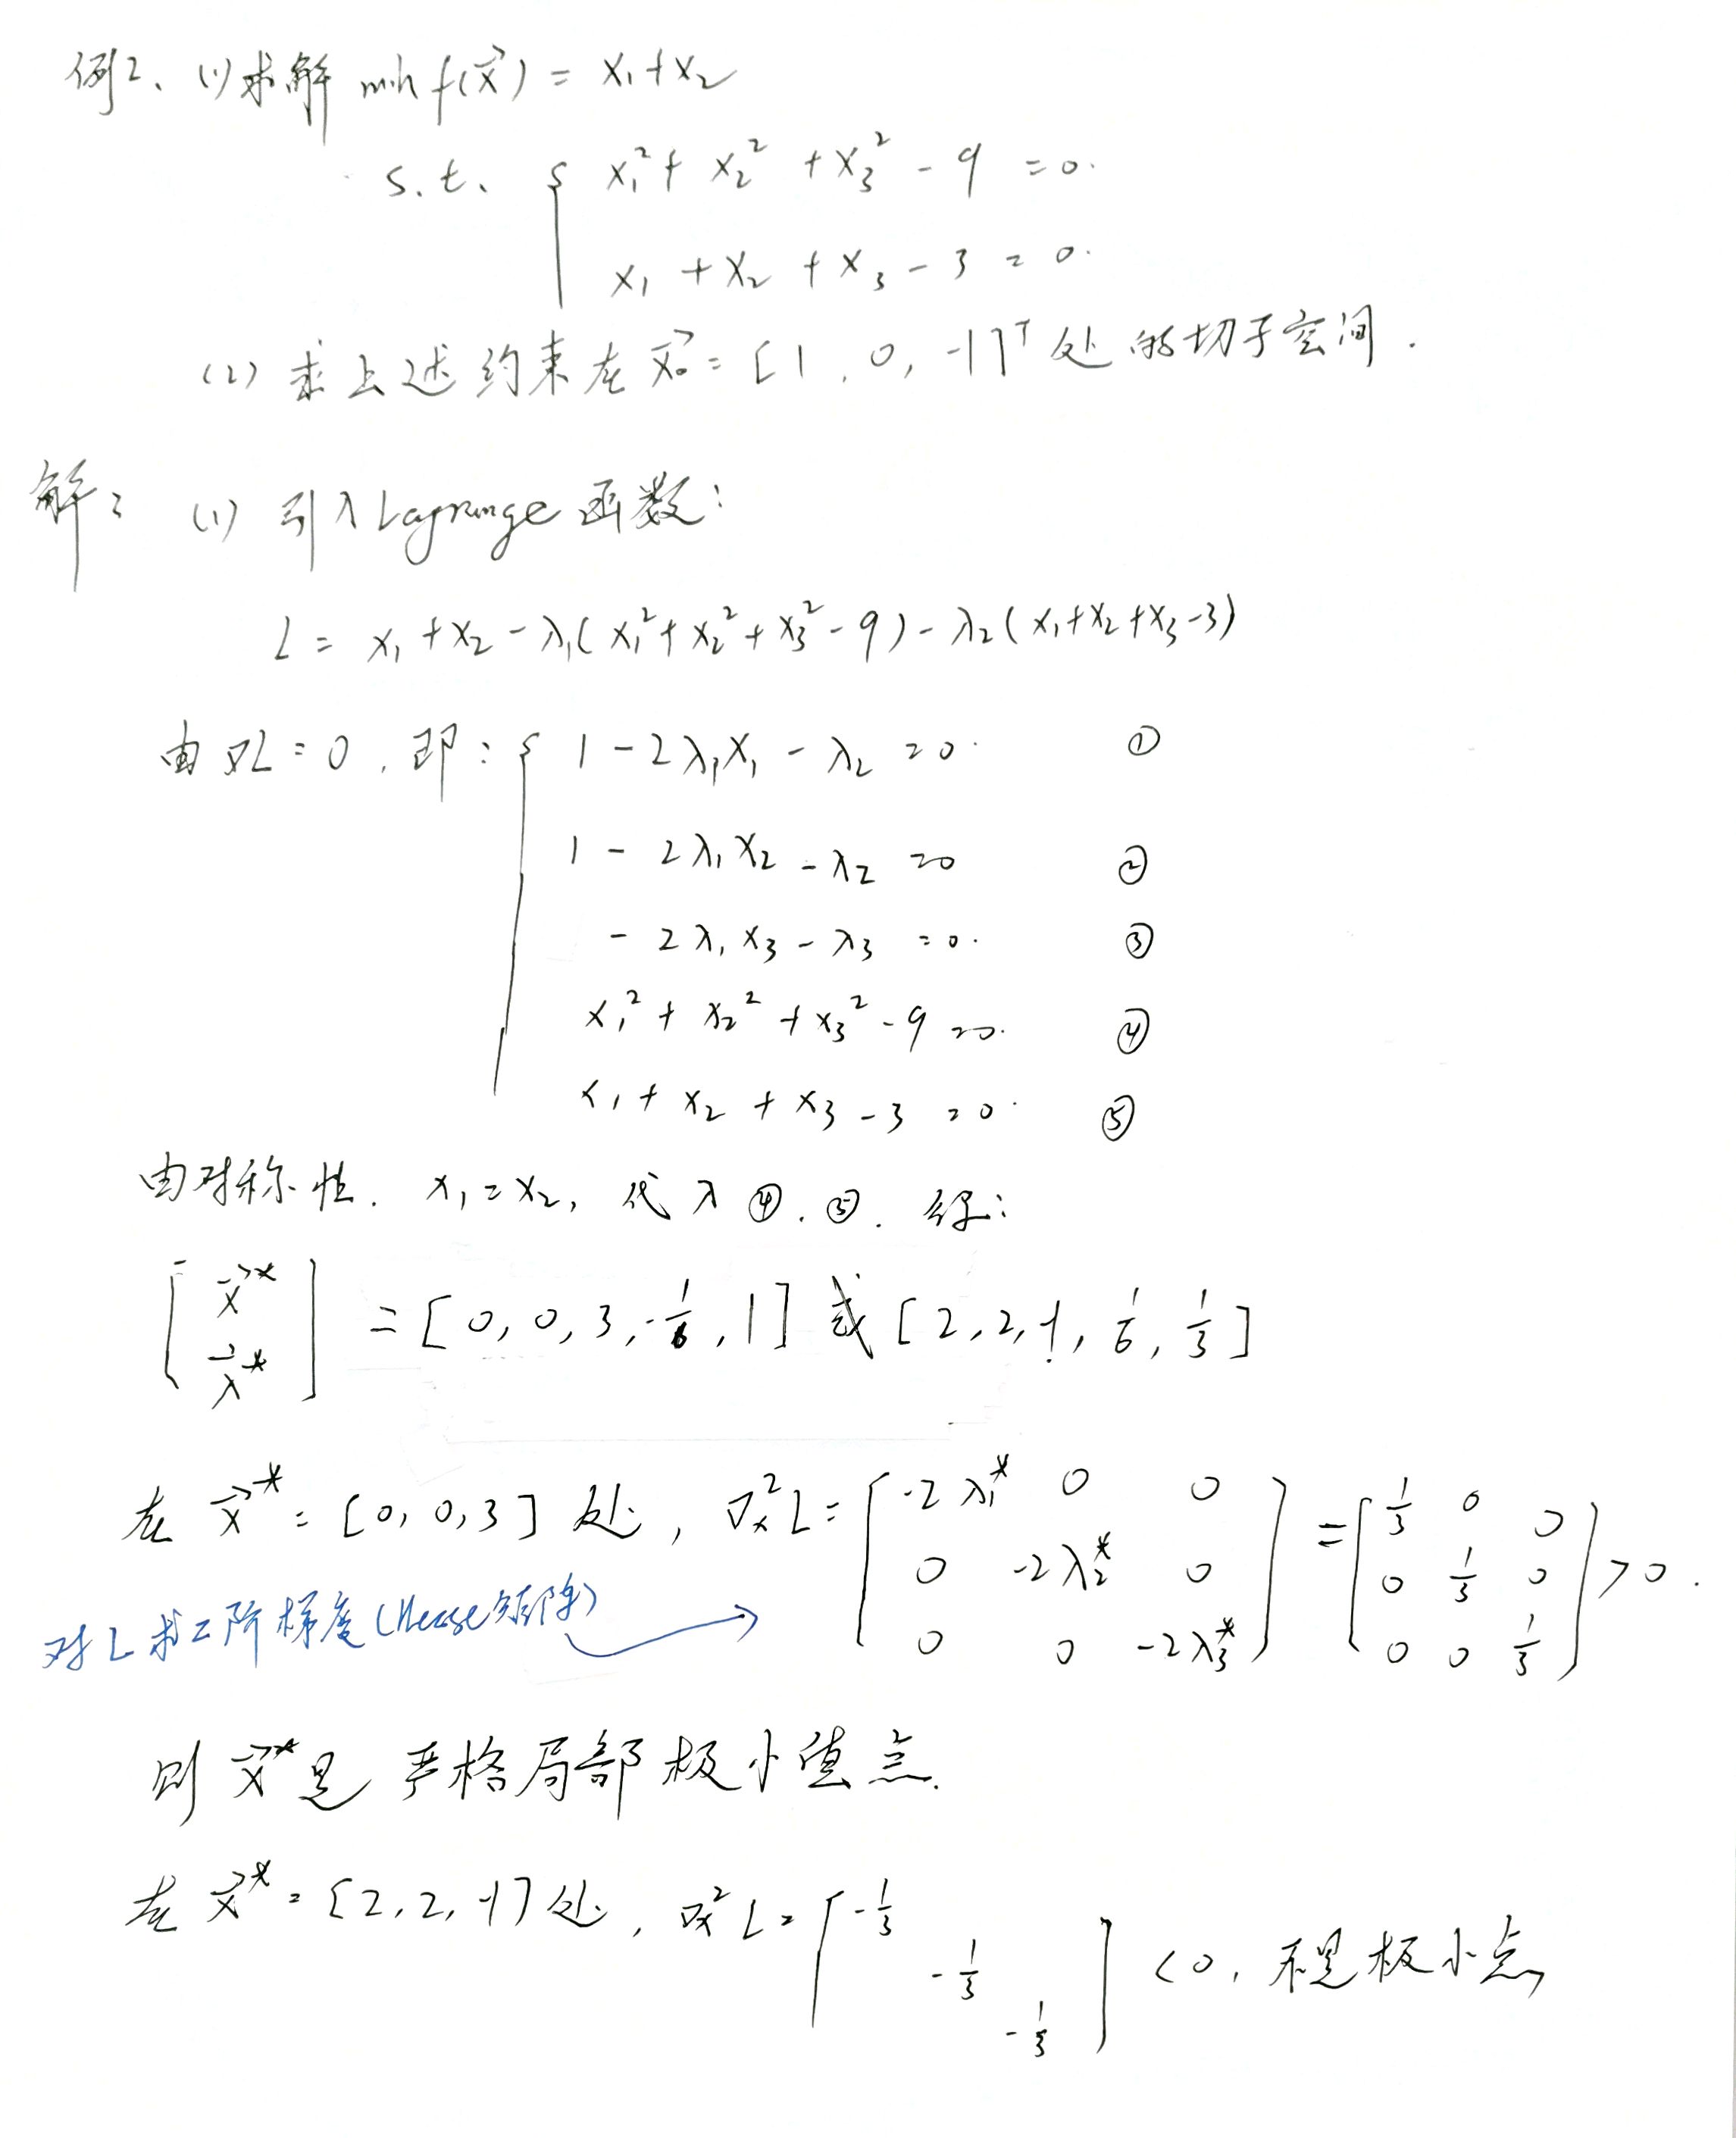 例2、(1)求解 min f(x⃗) = x₁+x₂
s.t. { x₁²+ x₂² +x₃² - 9 =0.
x₁ +x₂ +x₃ - 3 = 0.
(2) 求上述约束在 x⃗₀= [1, 0, -1]ᵀ 处的切子空间.
解: (1) 引入Lagrange函数:
L = x₁ +x₂ -λ₁( x₁²+x₂²+x₃²-9) - λ₂( x₁+x₂+x₃-3)
由∇L=0, 即: { 1 - 2λ₁x₁ - λ₂ =0. ①
1 - 2λ₁x₂ -λ₂ =0 ②
- 2λ₁x₃ - λ₃ =0. ③
x₁² + x₂² +x₃² -9 =0. ④
x₁+ x₂ + x₃ -3 =0. ⑤
由对称性. x₁=x₂, 代入④.⑤. 得:
[ x⃗* λ⃗* ] = [0, 0, 3, -1/6, 1] 或 [2, 2, -1, 1/6, 1/3]
在 x⃗* = [0, 0, 3] 处, ∇ₓ²L= [ -2λ₁* 0 0 0 -2λ₂* 0 0 0 -2λ₃* ] = [ 1/3 0 0 0 1/3 0 0 0 1/3 ] >0.
对L求二阶梯度(Hesse矩阵)
则 x⃗*是 严格局部极小值点.
在 x⃗*= [2, 2, -1] 处, ∇ₓ²L= [ -1/3 -1/3 -1/3 ] <0, 不是极小点